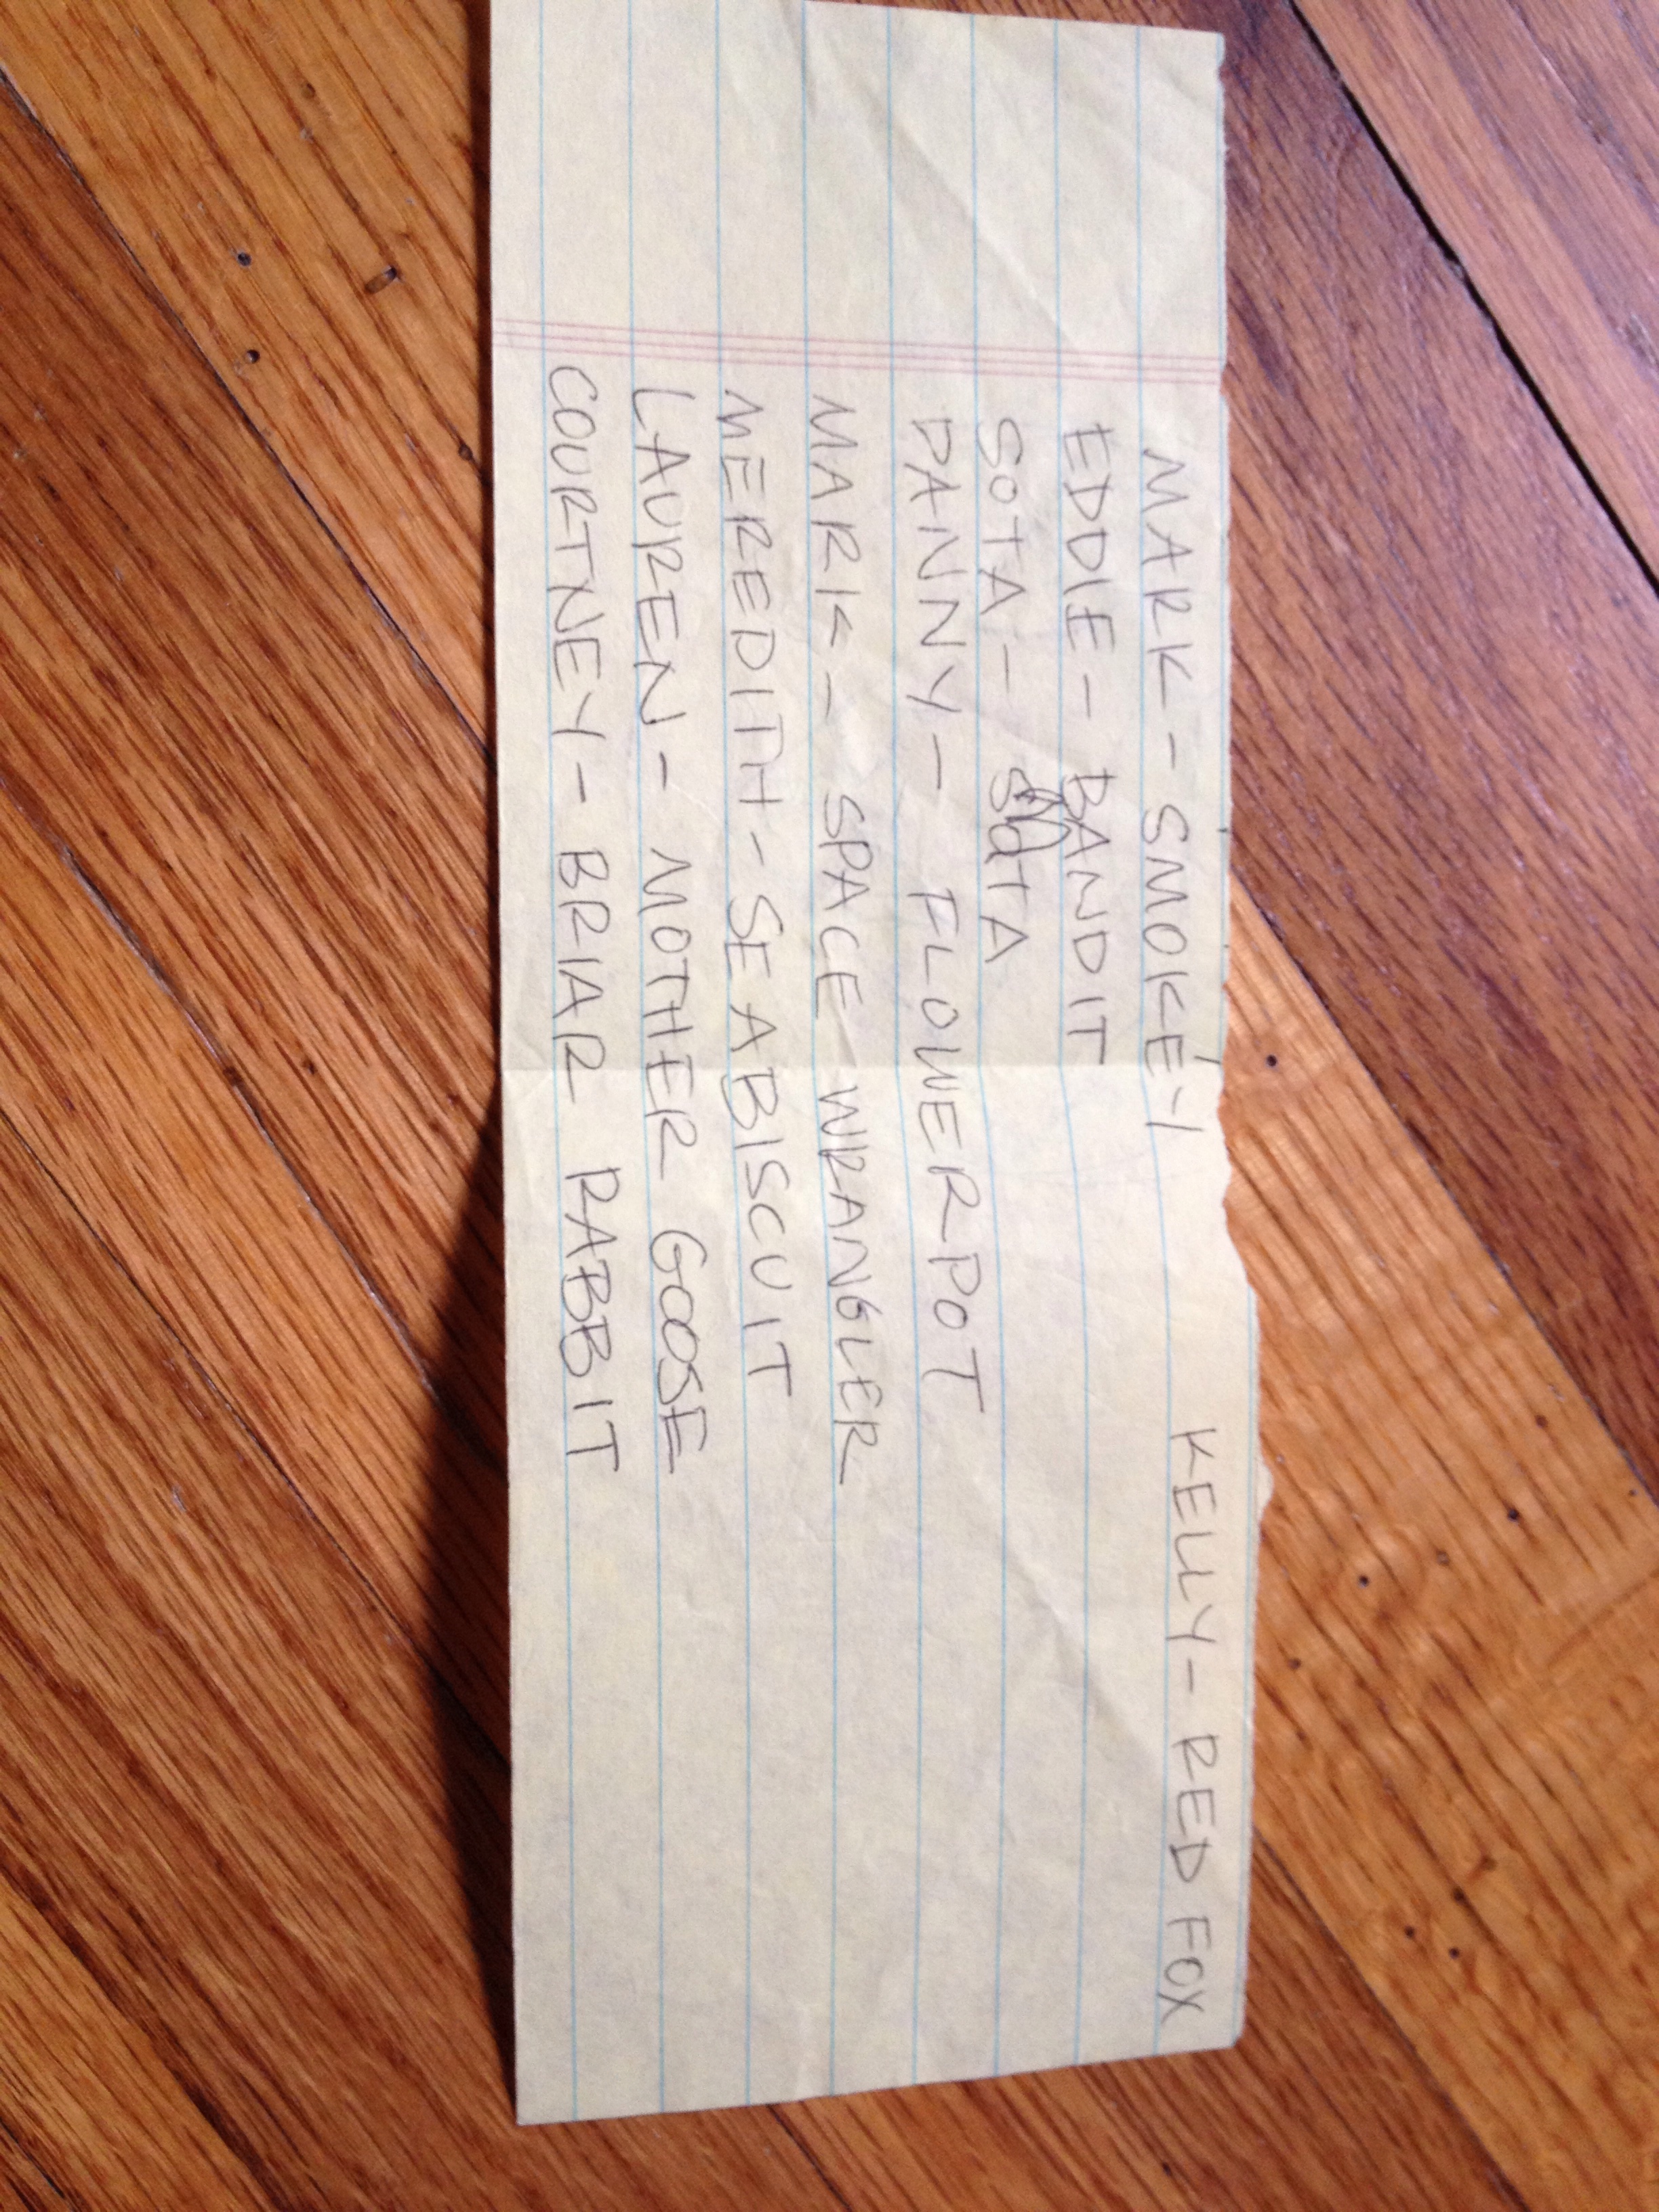 MARK - SMOKEY KELLY - RED FOX
EDDIE - BANDIT
SOTA - SOTA
DANNY - FLOWERPOT
MARK - SPACE WRANGLER
MEREDITH - SEABISCUIT
LAUREN - MOTHER GOOSE
COURTNEY - BRIAR RABBIT